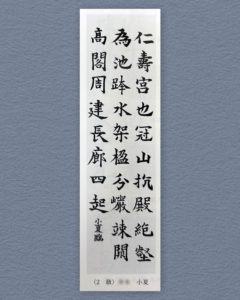 仁壽宮也冠山抗殿絶壑
為池跨水架楹分巖竦闕
高閣周建長廊四起
小夏臨
(2 級) 小夏